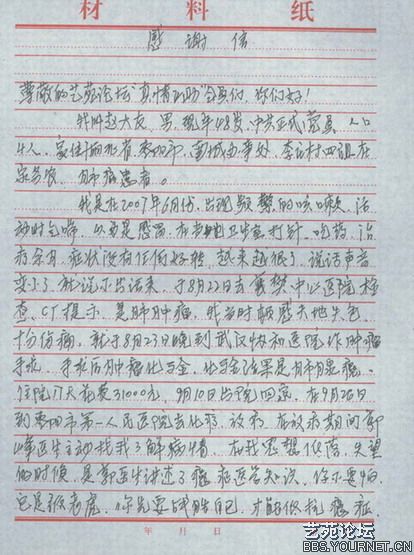 材料纸
感谢信
尊敬的艺苑论坛"真情互助"会员们，你们好！
我叫赵大友，男，现年48岁，中共正式党员，人口
4人，家住湖北省枣阳市，南城办事处，李 村四组在
家务农，为肺癌患者。
我是在2007年6月份，出现频繁的咳嗽，活
动时气喘，以为是感冒，在当地卫生室打针，吃药，治
疗余月，症状没有任何好转，越来越很了，说话声音
变小了，就说不出话来，于8月22日去襄樊中心医院检
查，CT提示，是肺肿瘤，我当时顿感天地失色，
十分伤痛，就于8月23日晚到武汉协和医院作肿瘤
手术，手术后肿瘤化验，化验结果是肺腺癌，
住院17天花费31000元，9月10日出院回家，在9月26日
到枣阳市第一人民医院去化疗，放疗，在放疗期间郭
峰医生主动找我了解病情，在我思想低落，失望
的时侯，是郭医生讲述了癌症医学知识，你不要怕
它是纸老虎，你先要战胜自己，才能抵抗癌症，
年 月 日
艺苑论坛
BBS.YOURNET.CN